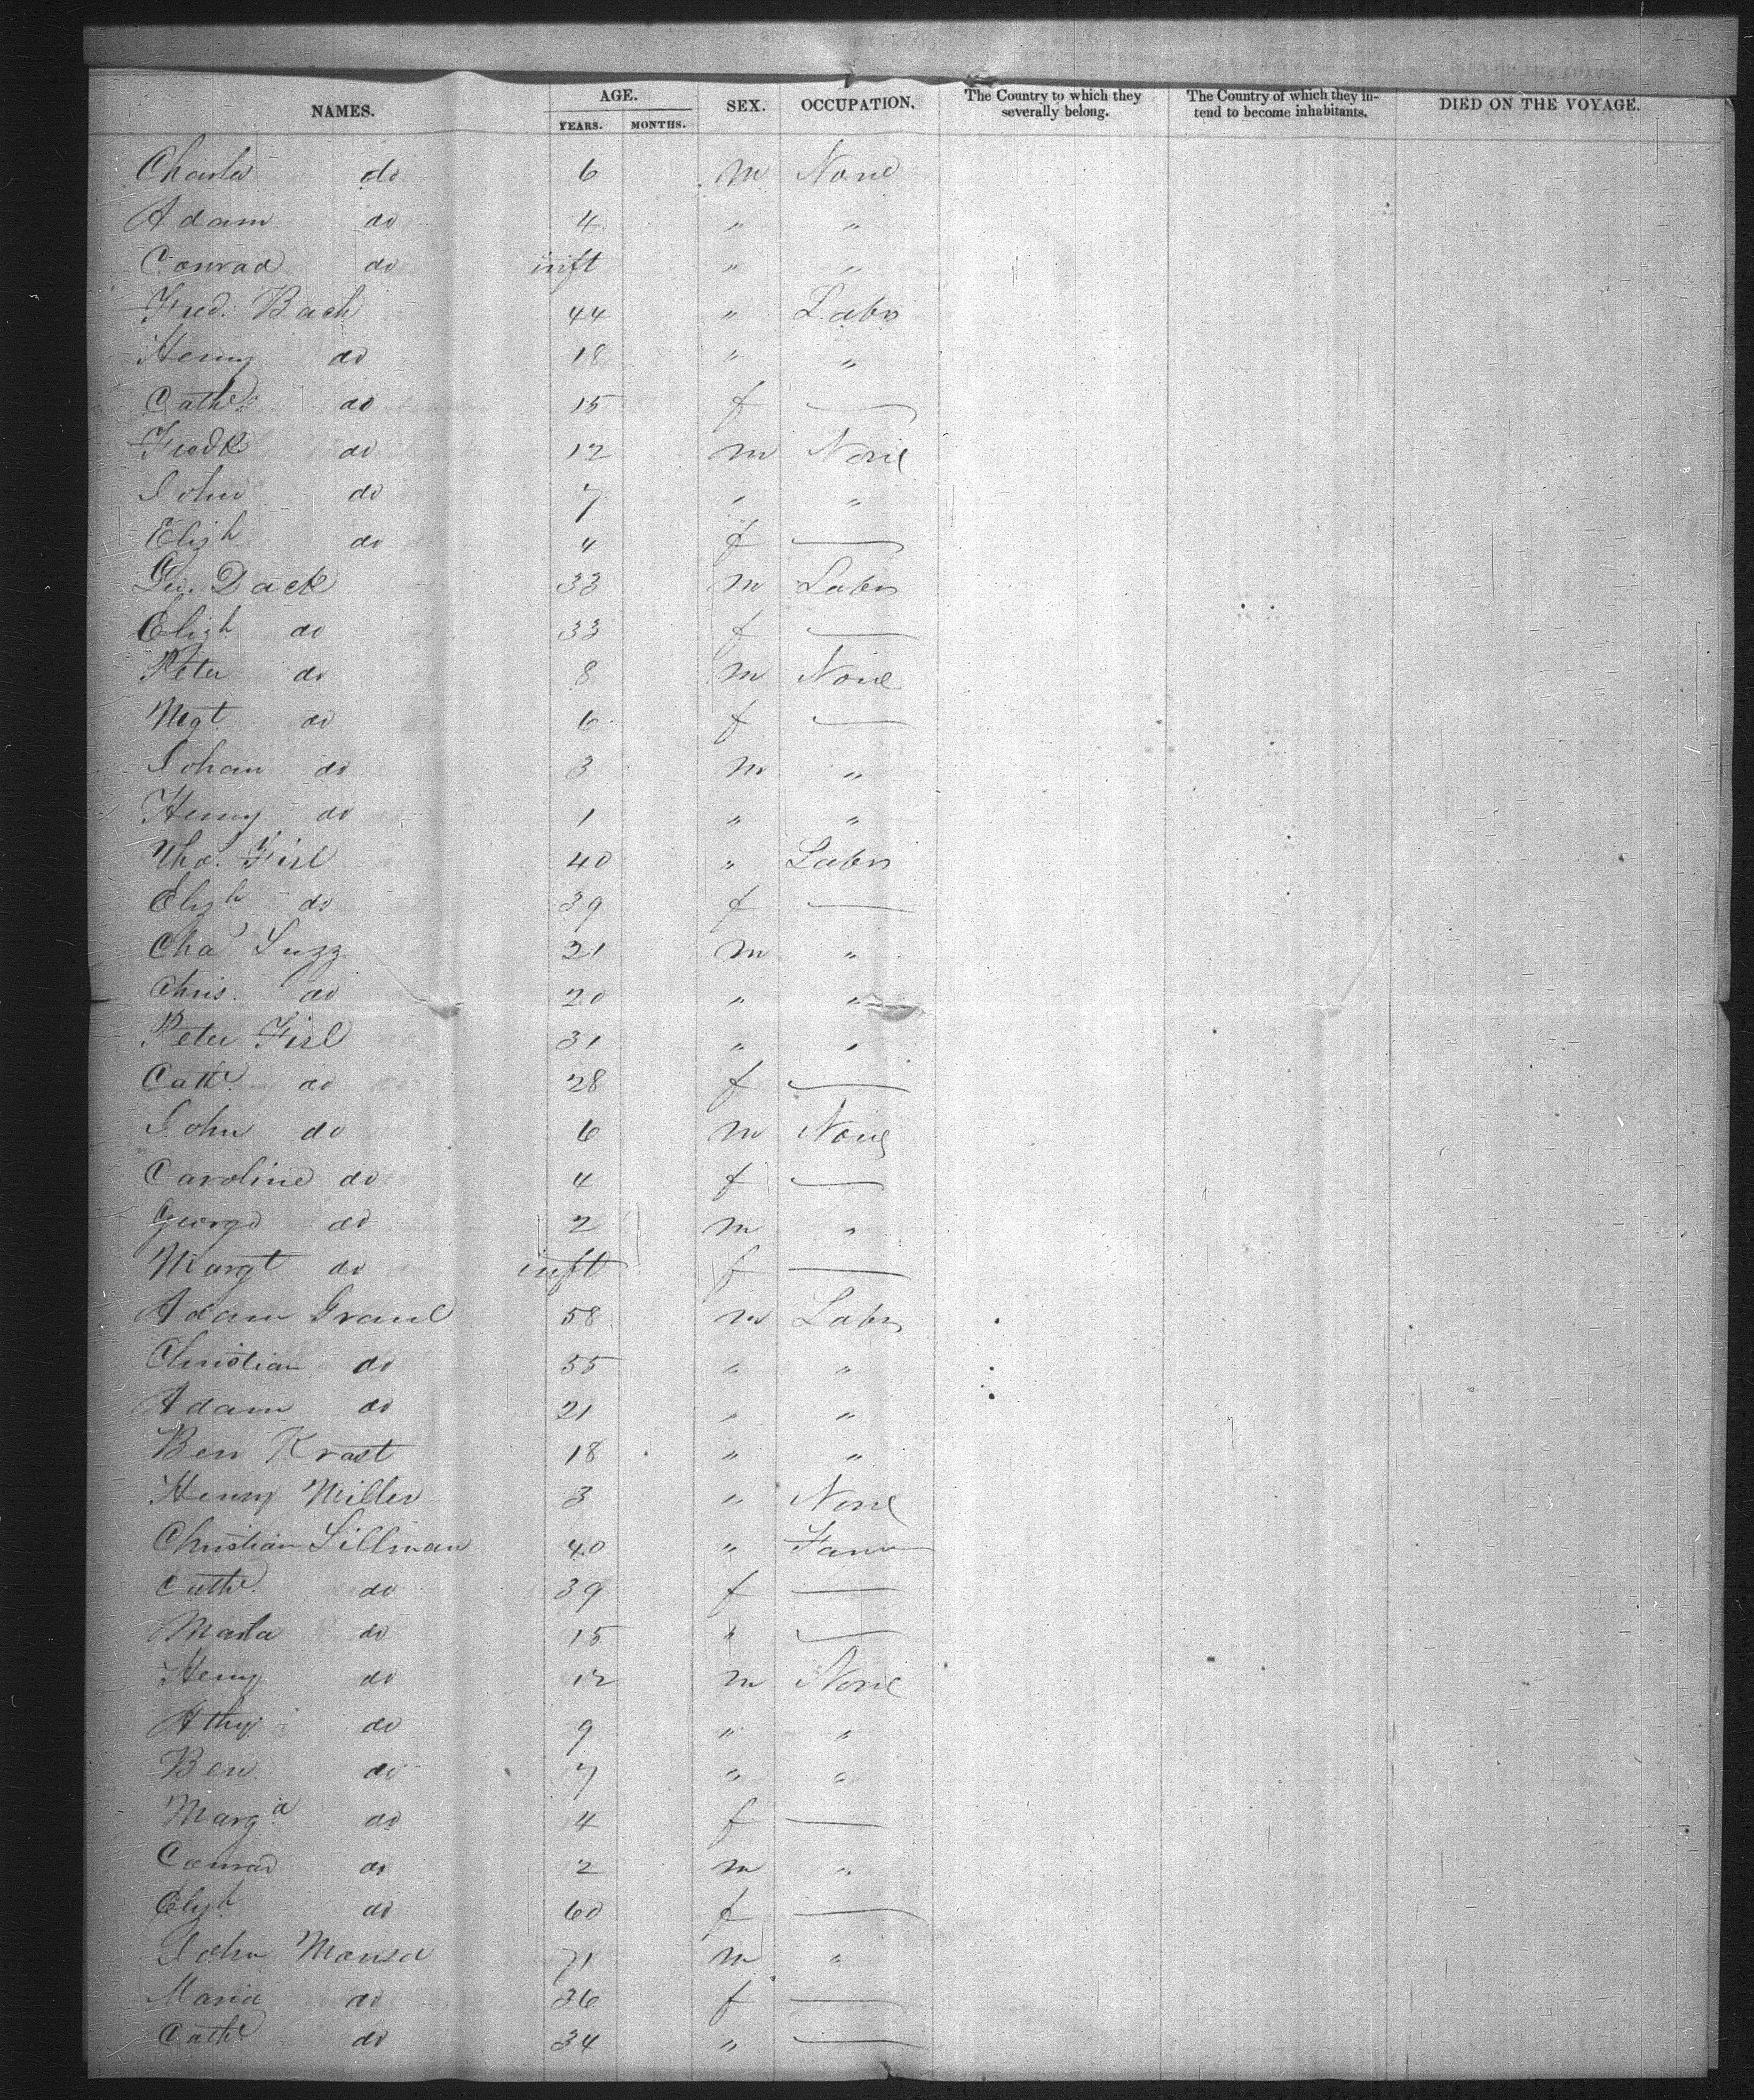 NAMES. AGE. SEX. OCCUPATION. The Country to which they severally belong. The Country of which they intend to become inhabitants. DIED ON THE VOYAGE.
YEARS. MONTHS.
Charls do 6 m None
Adam do 4 " "
Conrad do inft " "
Fred. Bach 44 " Labr
Henry do 18 " "
Cathe do 15 f —
Fredk do 12 m None
John do 7 " "
Elizh do 4 f —
Geo. Dack 33 m Labr
Elizh do 33 f —
Peter do 8 m None
Mgt do 6 f —
Johan do 3 m "
Henry do 1 " "
Fisl 40 " Labr
Elizh do 39 f —
Chas Luzz 21 m "
Chris. do 20 " "
Peter Fisl 31 " "
Cathe do 28 f —
John do 6 m None
Caroline do 4 f —
George do 2 m "
Margt do inft f —
Adam Graul 58 m Labr
Christian do 55 " "
Adam do 21 " "
Ben Krast 18 " "
Henry Miller 3 " None
Christian Sillman 40 " Farmr
Cathe do 39 f —
Marla do 15 " —
Henry do 12 m None
do 9 " "
Ben do 7 " "
Marga do 4 f —
Conrad do 2 m "
Elizh do 60 f —
John 71 m "
Maria do 36 f —
Cathe do 34 " —